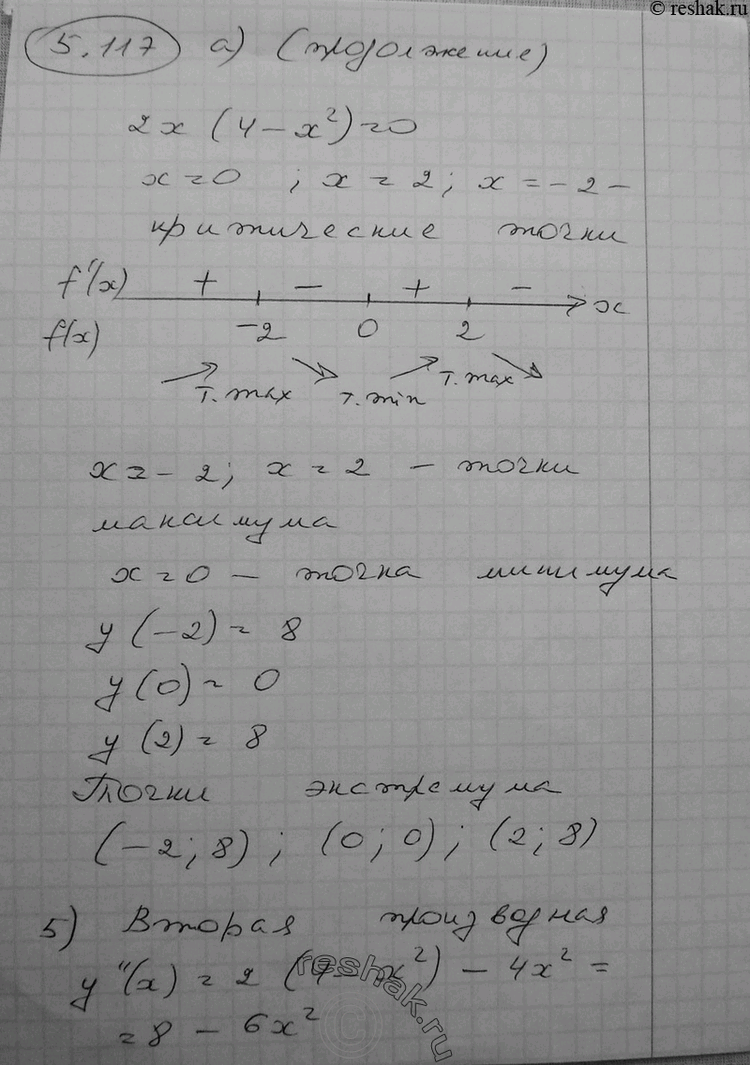 © reshak.ru
5.117 а) (продолжение)
2x (4 - x²) = 0
x = 0 ; x = 2 ; x = -2 -
критические точки
f'(x) + - + - x
f(x) -2 0 2
т. max т. min т. max
x = -2; x = 2 - точки
максимума
x = 0 - точка минимума
y (-2) = 8
y (0) = 0
y (2) = 8
Точки экстремума
(-2; 8) ; (0; 0) ; (2; 8)
5) Вторая производная
y''(x) = 2 (4 - x²) - 4x² =
= 8 - 6x²
reshak.ru